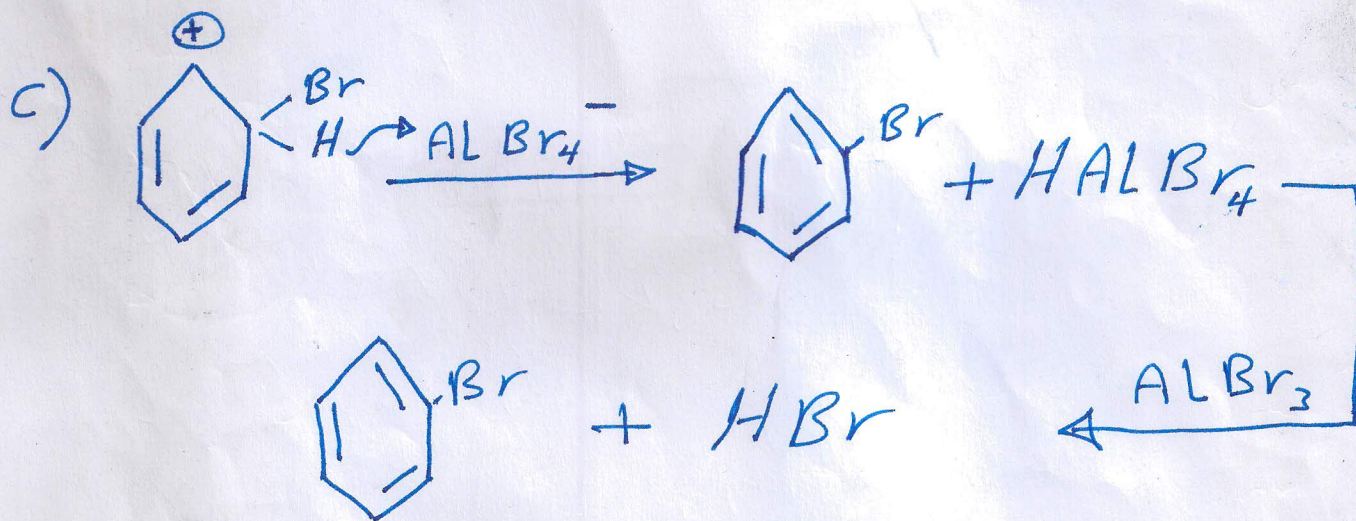 ⊕
C) Br
H AL Br₄⁻ Br + HALBr₄
Br + HBr ALBr₃